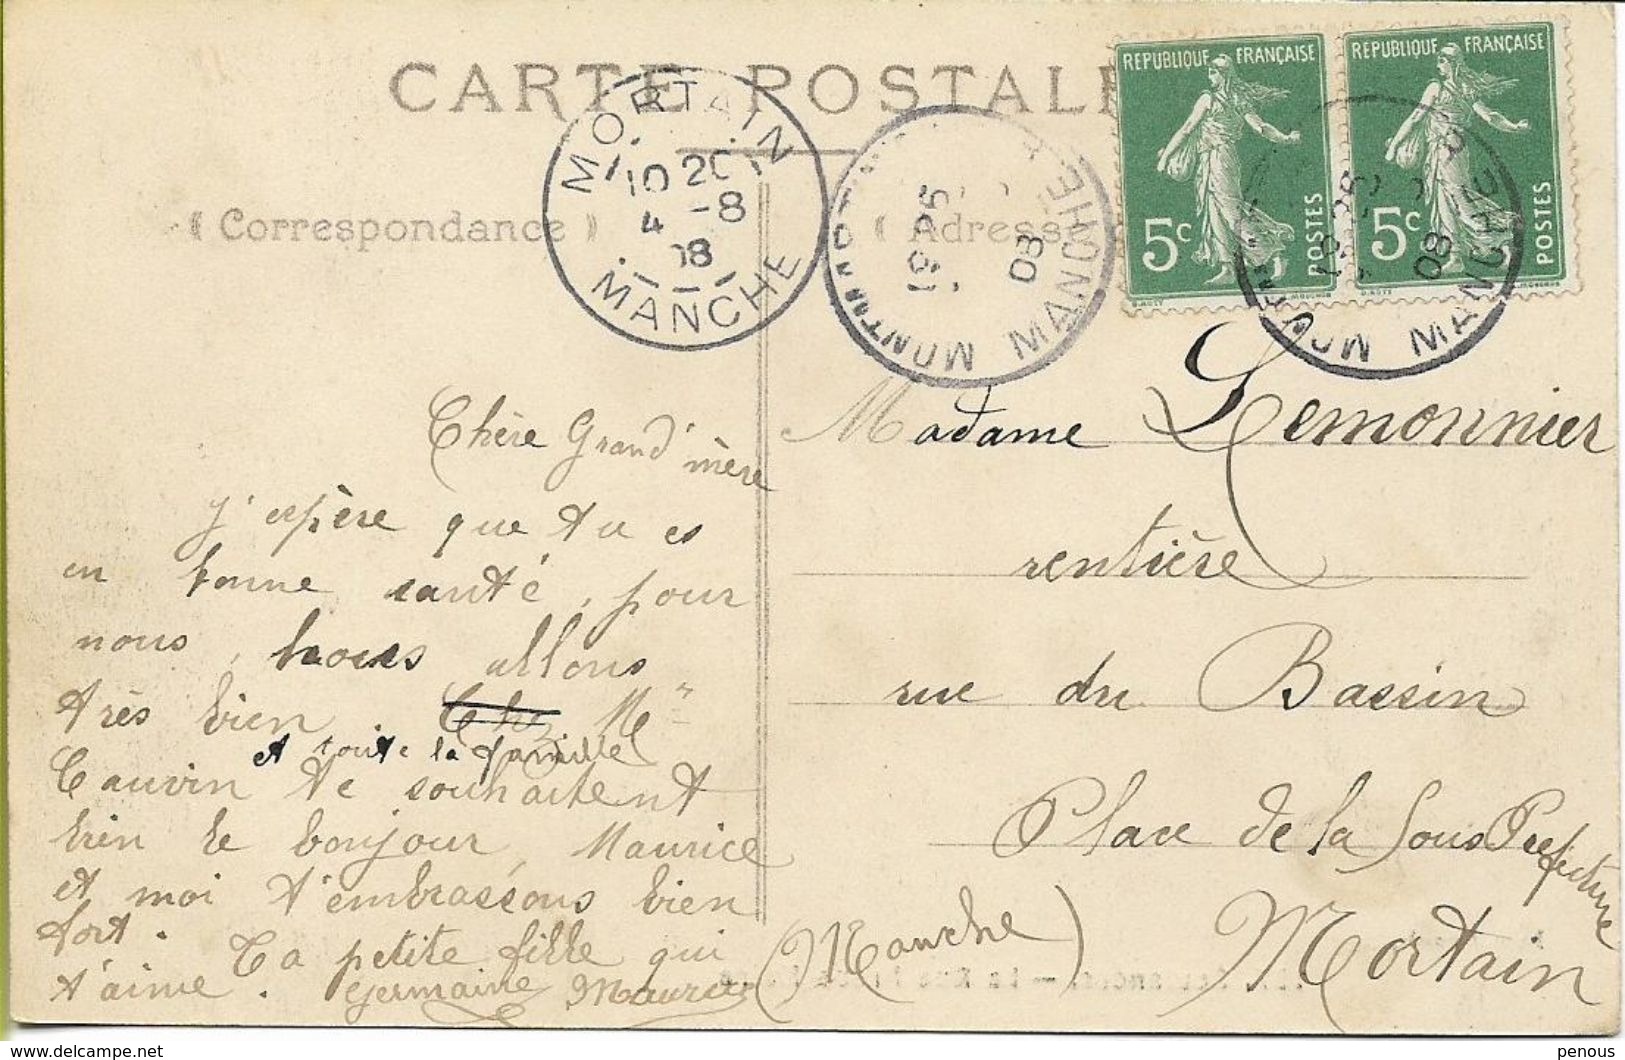 CARTE POSTALE
REPUBLIQUE FRANÇAISE
5c
POSTES
REPUBLIQUE FRANÇAISE
5c
POSTES
MORTAIN
10 20
4 -8
08
MANCHE
19 25
08
MANCHE
19 25
08
MANCHE
« Correspondance »
« Adresse
Chère Grand'mère
j'espère que tu es
en bonne santé, pour
nous, nous allons
très bien Che Me
et toute la famille
Cauvin te souhaitent
bien le bonjour, Maurice
et moi t'embrassons bien
fort.
Ta petite fille qui
t'aime. Germaine Maurice
Madame Lemonnier
rentière
rue du Bassin
Place de la Sous Prefecture
(Manche) Mortain
penous